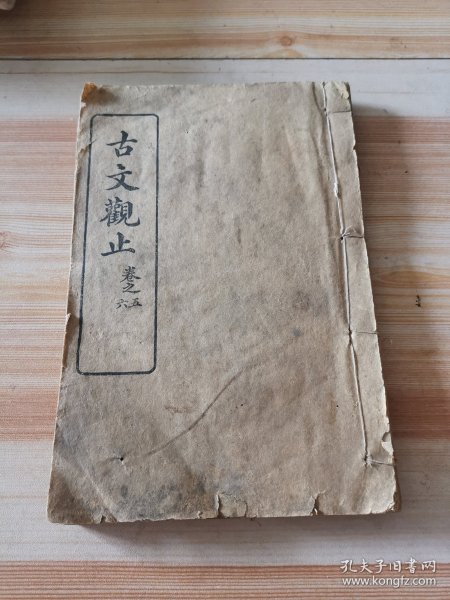 古文觀止
卷之五六
孔夫子旧书网
www.kongfz.com